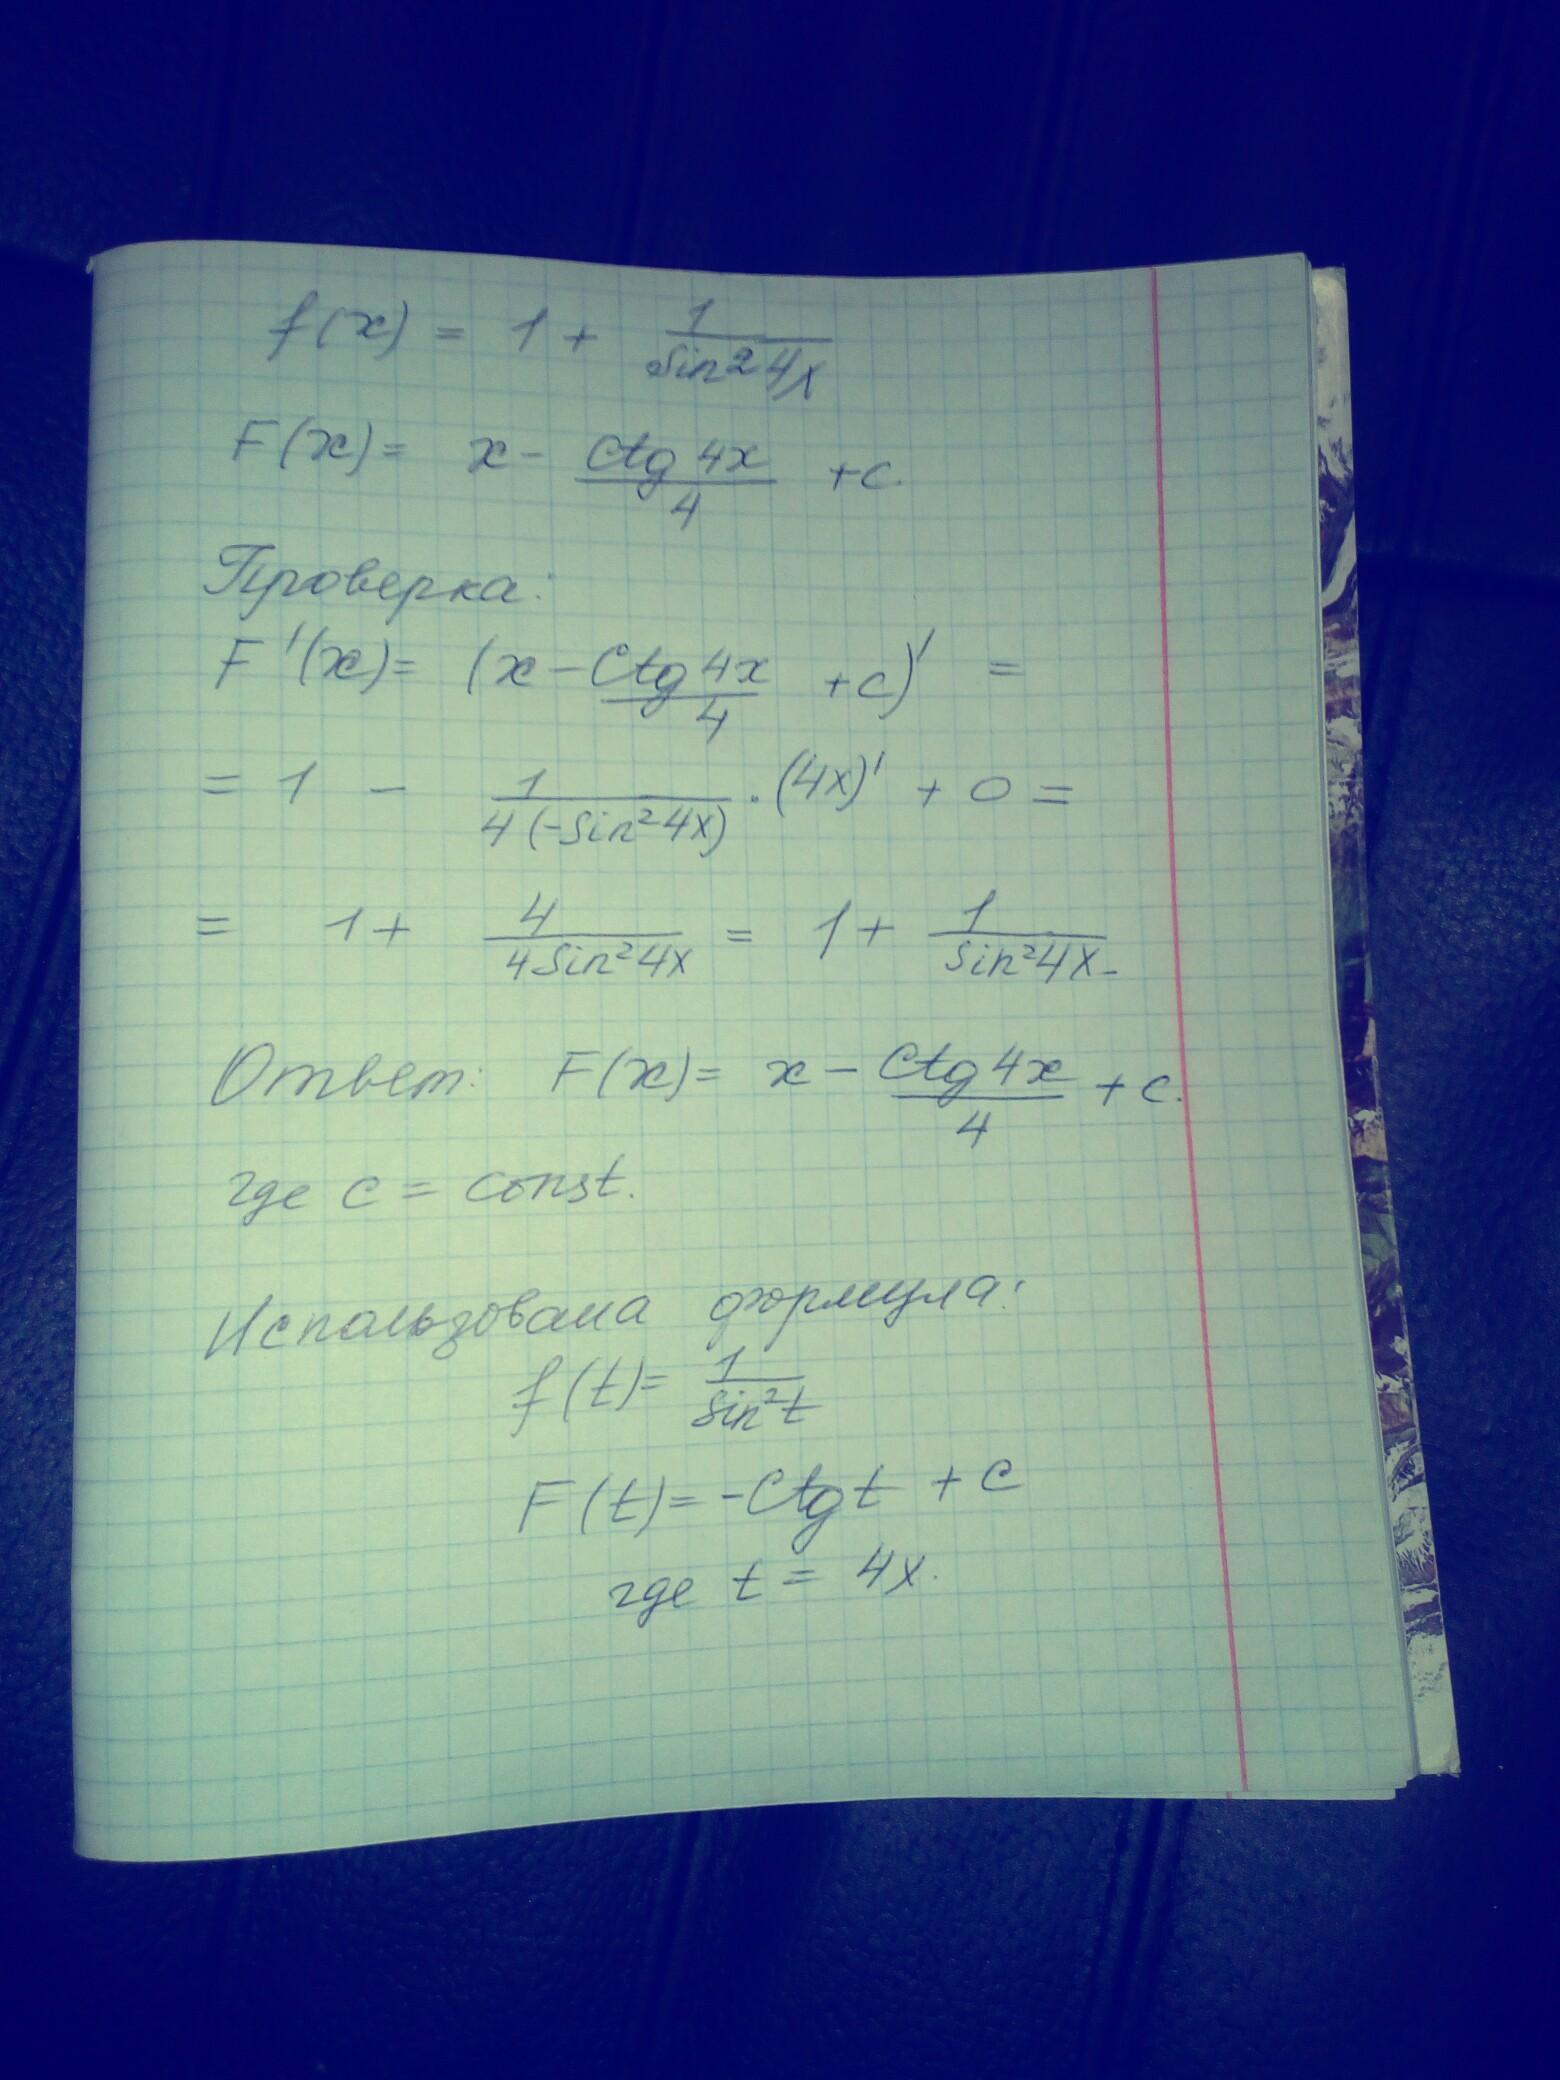 f(x) = 1 + 1/sin²4x
F(x) = x - ctg 4x/4 + c.
Проверка:
F'(x) = (x - ctg 4x/4 + c)' =
= 1 - 1/4(-sin²4x) · (4x)' + 0 =
= 1 + 4/4sin²4x = 1 + 1/sin²4x.
Ответ: F(x) = x - ctg 4x/4 + c.
где c = const.
Использована формула:
f(t) = 1/sin²t
F(t) = -ctg t + c
где t = 4x.